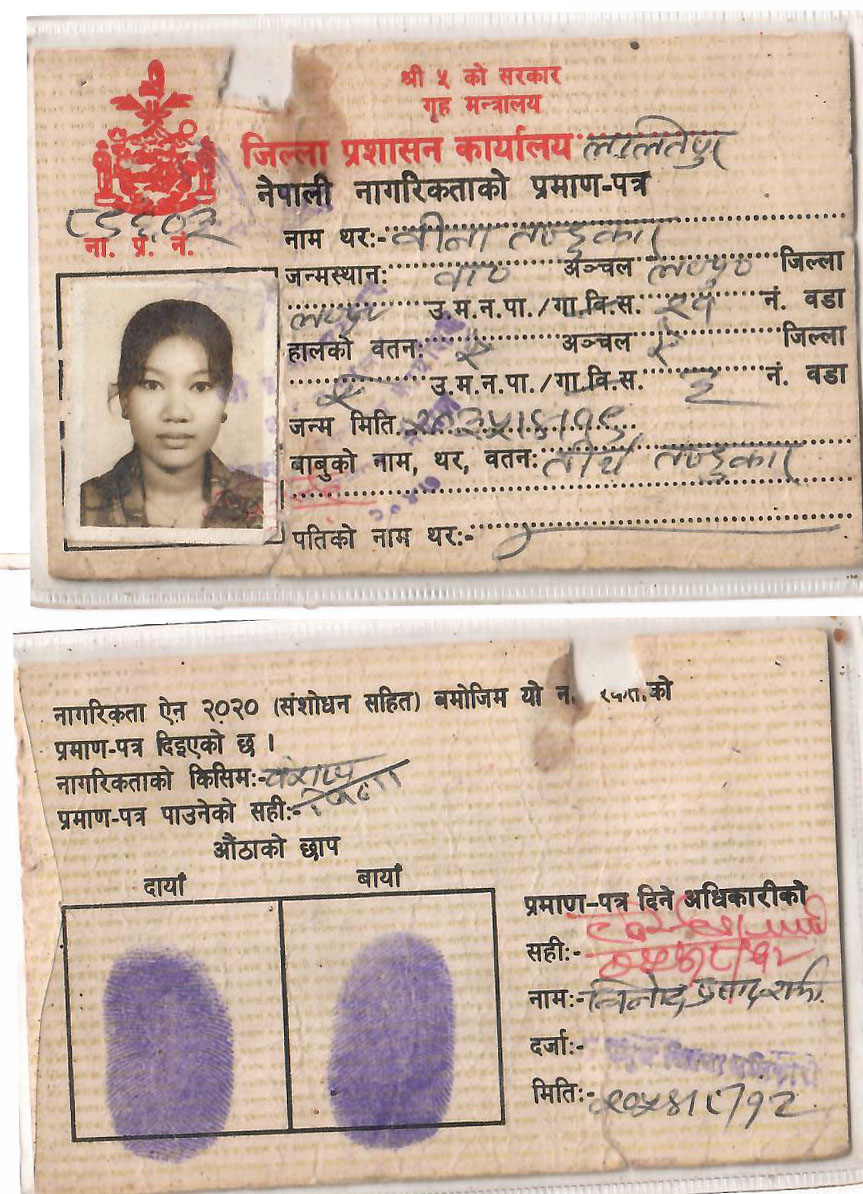 श्री ५ को सरकार
गृह मन्त्रालय
जिल्ला प्रशासन कार्यालय ललितपुर
नेपाली नागरिकताको प्रमाण-पत्र
ना. प्र. नं.
नाम थर:- वीना तण्डुकार
जन्मस्थान: अञ्चल ल०पु० जिल्ला
ल०पु० उ.म.न.पा./गा.वि.स. नं. वडा
हालको वतन: ऐ अञ्चल ऐ जिल्ला
ऐ उ.म.न.पा./गा.वि.स. ऐ नं. वडा
जन्म मिति
बाबुको नाम, थर, वतन: तीर्थ तण्डुकार
पतिको नाम थर:-
नागरिकता ऐन २०२० (संशोधन सहित) बमोजिम यो
प्रमाण-पत्र दिइएको छ ।
नागरिकताको किसिम:- वंशज
प्रमाण-पत्र पाउनेको सही:-
औंठाको छाप
दायाँ बायाँ
प्रमाण-पत्र दिने अधिकारीको
सही:-
नाम:- विनोद प्रसाद
दर्जा:-
मिति:- २०५४।८।१२